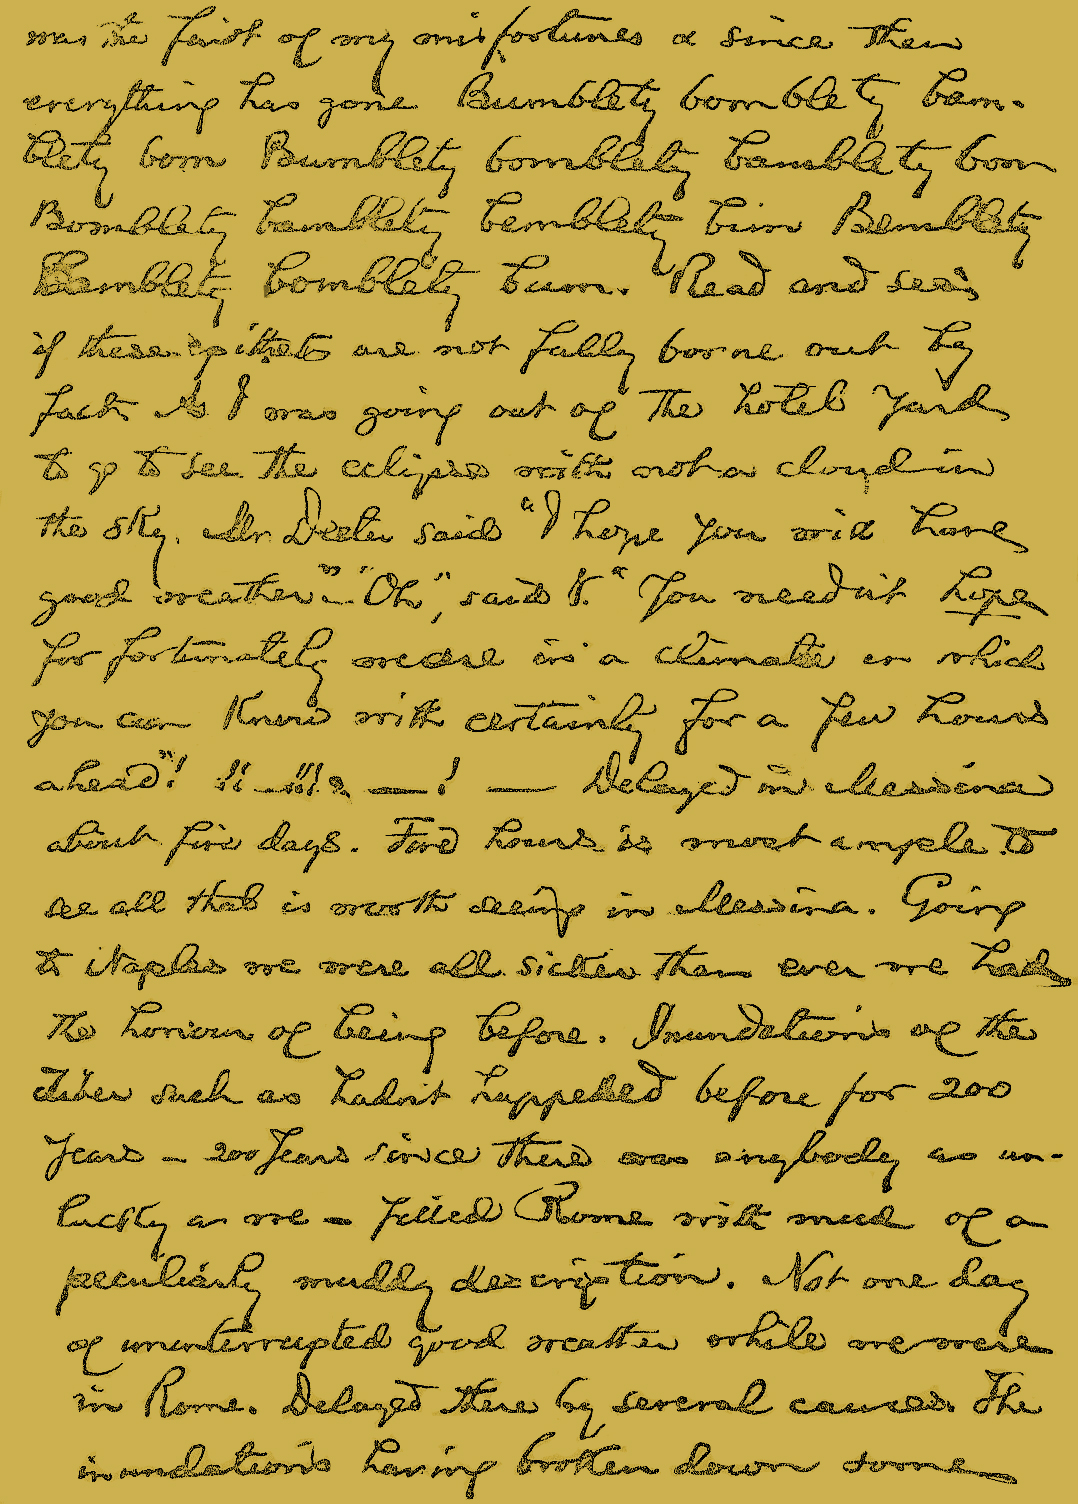 was the first of my misfortunes & since then
everything has gone Bumblety bomblety bam-
blety bom Bumblety bomblety bamblety bom
Bomblety bamblety bemblety bim Bemblety
Bamblety bomblety bum. Read and see
if these epithets are not fully borne out by
fact. As I was going out of the hotel yard
to go to see the eclipse with not a cloud in
the sky, Mr. Deeter said "I hope you will have
good weather". "Oh", said I. "You needn't hope
for fortunately we are in a climate in which
you can know with certainty for a few hours
ahead"! !! — !!!! — ! — Delayed in Messina
about five days. Five hours is most ample to
see all that is worth seeing in Messina. Going
to Naples we were all sicker than ever we had
the honour of being before. Inundations of the
Tiber such as hadn't happened before for 200
years — 200 years since there was anybody as un-
lucky as we — filled Rome with mud of a
peculiarly muddy description. Not one day
of uninterrupted good weather while we were
in Rome. Delayed there by several causes. The
inundations having broken down some